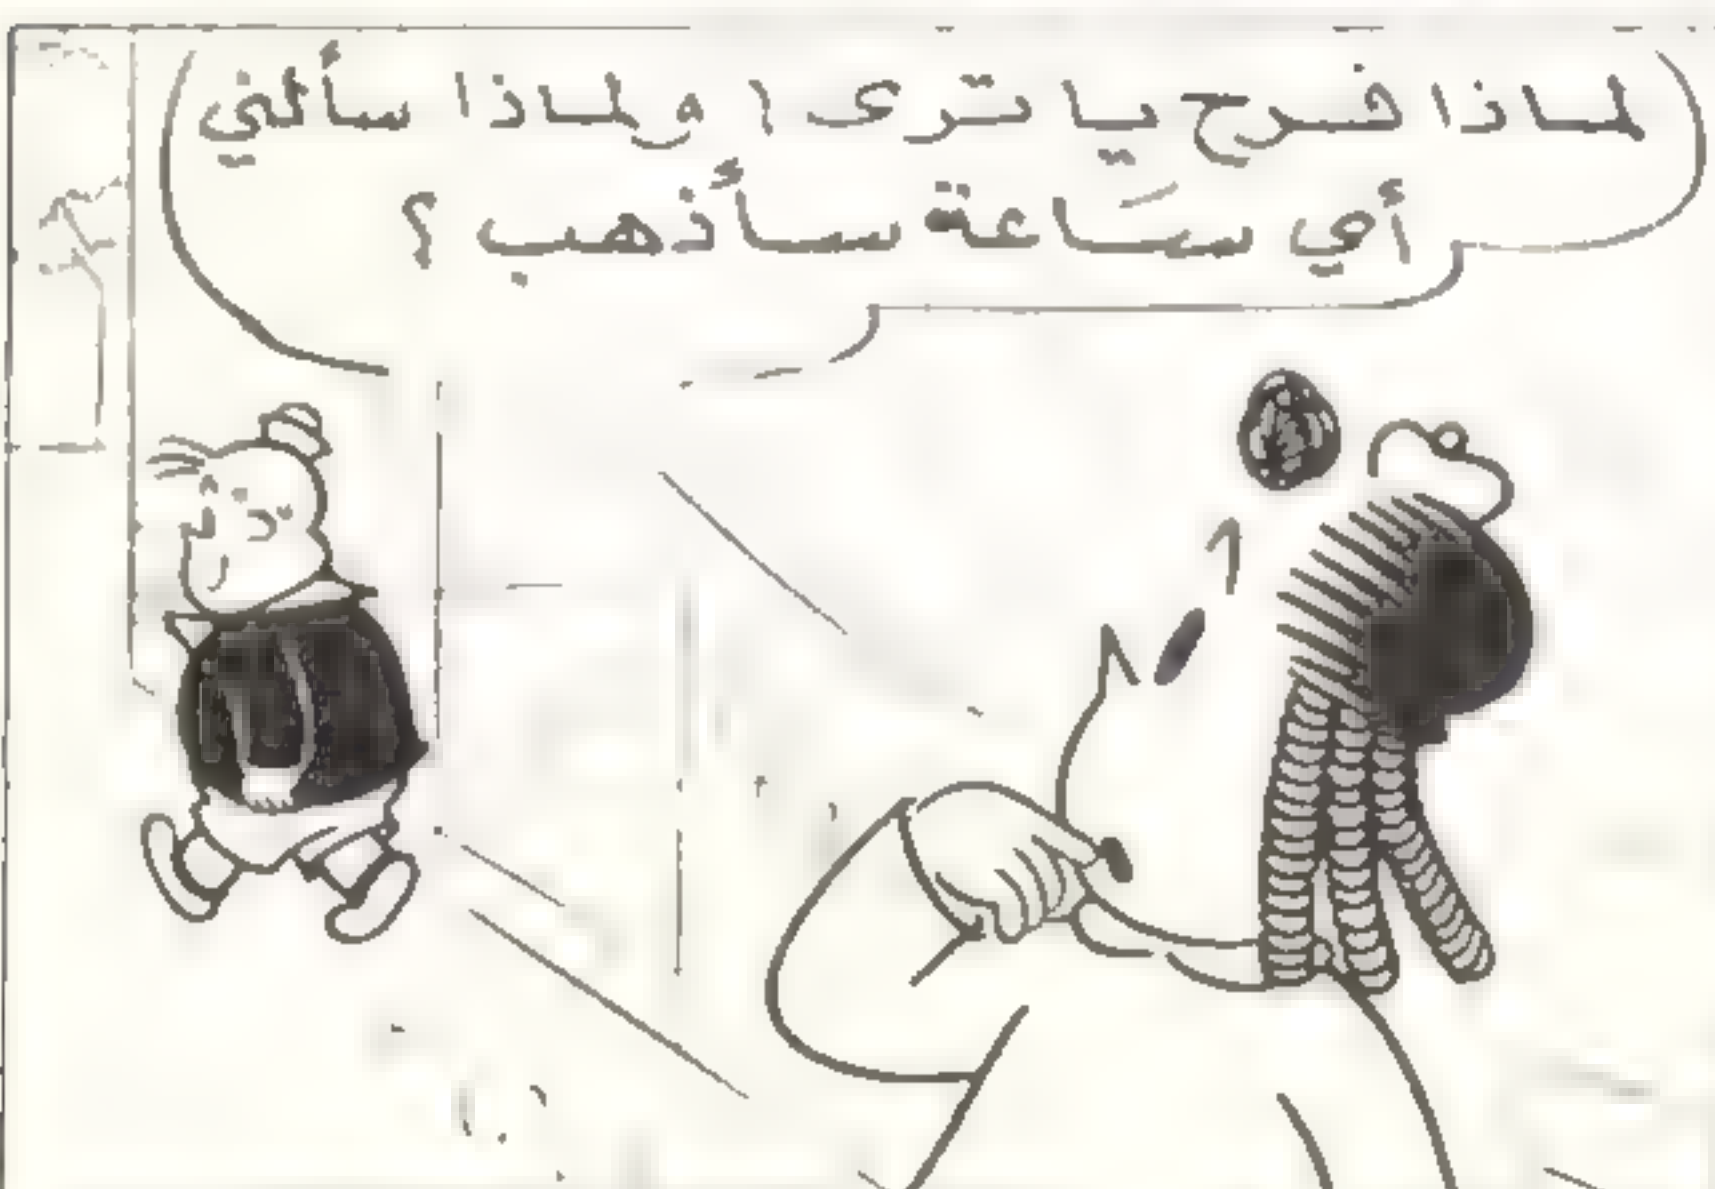 لماذا فرح يا ترى ؟ ولماذا سألني
أي سَاعة سأذهب ؟